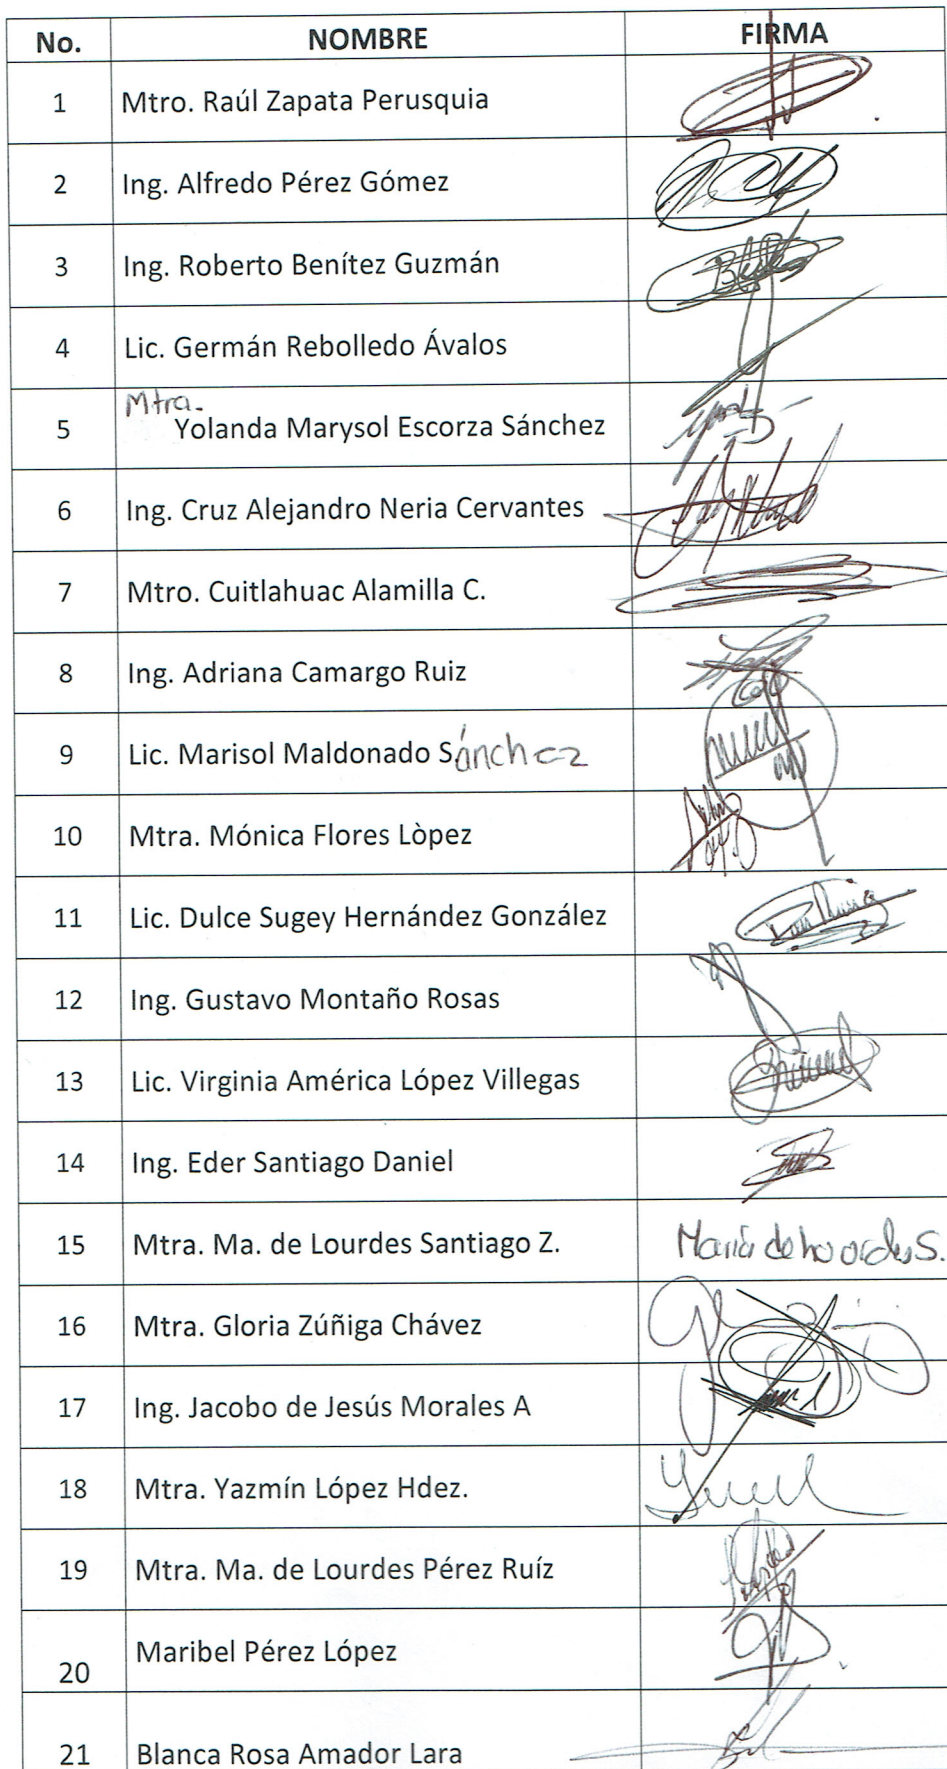 No. NOMBRE FIRMA
1 Mtro. Raúl Zapata Perusquia
2 Ing. Alfredo Pérez Gómez
3 Ing. Roberto Benítez Guzmán
4 Lic. Germán Rebolledo Ávalos
Mtra.
5 Yolanda Marysol Escorza Sánchez
6 Ing. Cruz Alejandro Neria Cervantes
7 Mtro. Cuitlahuac Alamilla C.
8 Ing. Adriana Camargo Ruiz
9 Lic. Marisol Maldonado Sánchez
10 Mtra. Mónica Flores Lòpez
11 Lic. Dulce Sugey Hernández González
12 Ing. Gustavo Montaño Rosas
13 Lic. Virginia América López Villegas
14 Ing. Eder Santiago Daniel
15 Mtra. Ma. de Lourdes Santiago Z. María de Lourdes S.
16 Mtra. Gloria Zúñiga Chávez
17 Ing. Jacobo de Jesús Morales A
18 Mtra. Yazmín López Hdez.
19 Mtra. Ma. de Lourdes Pérez Ruíz
20 Maribel Pérez López
21 Blanca Rosa Amador Lara